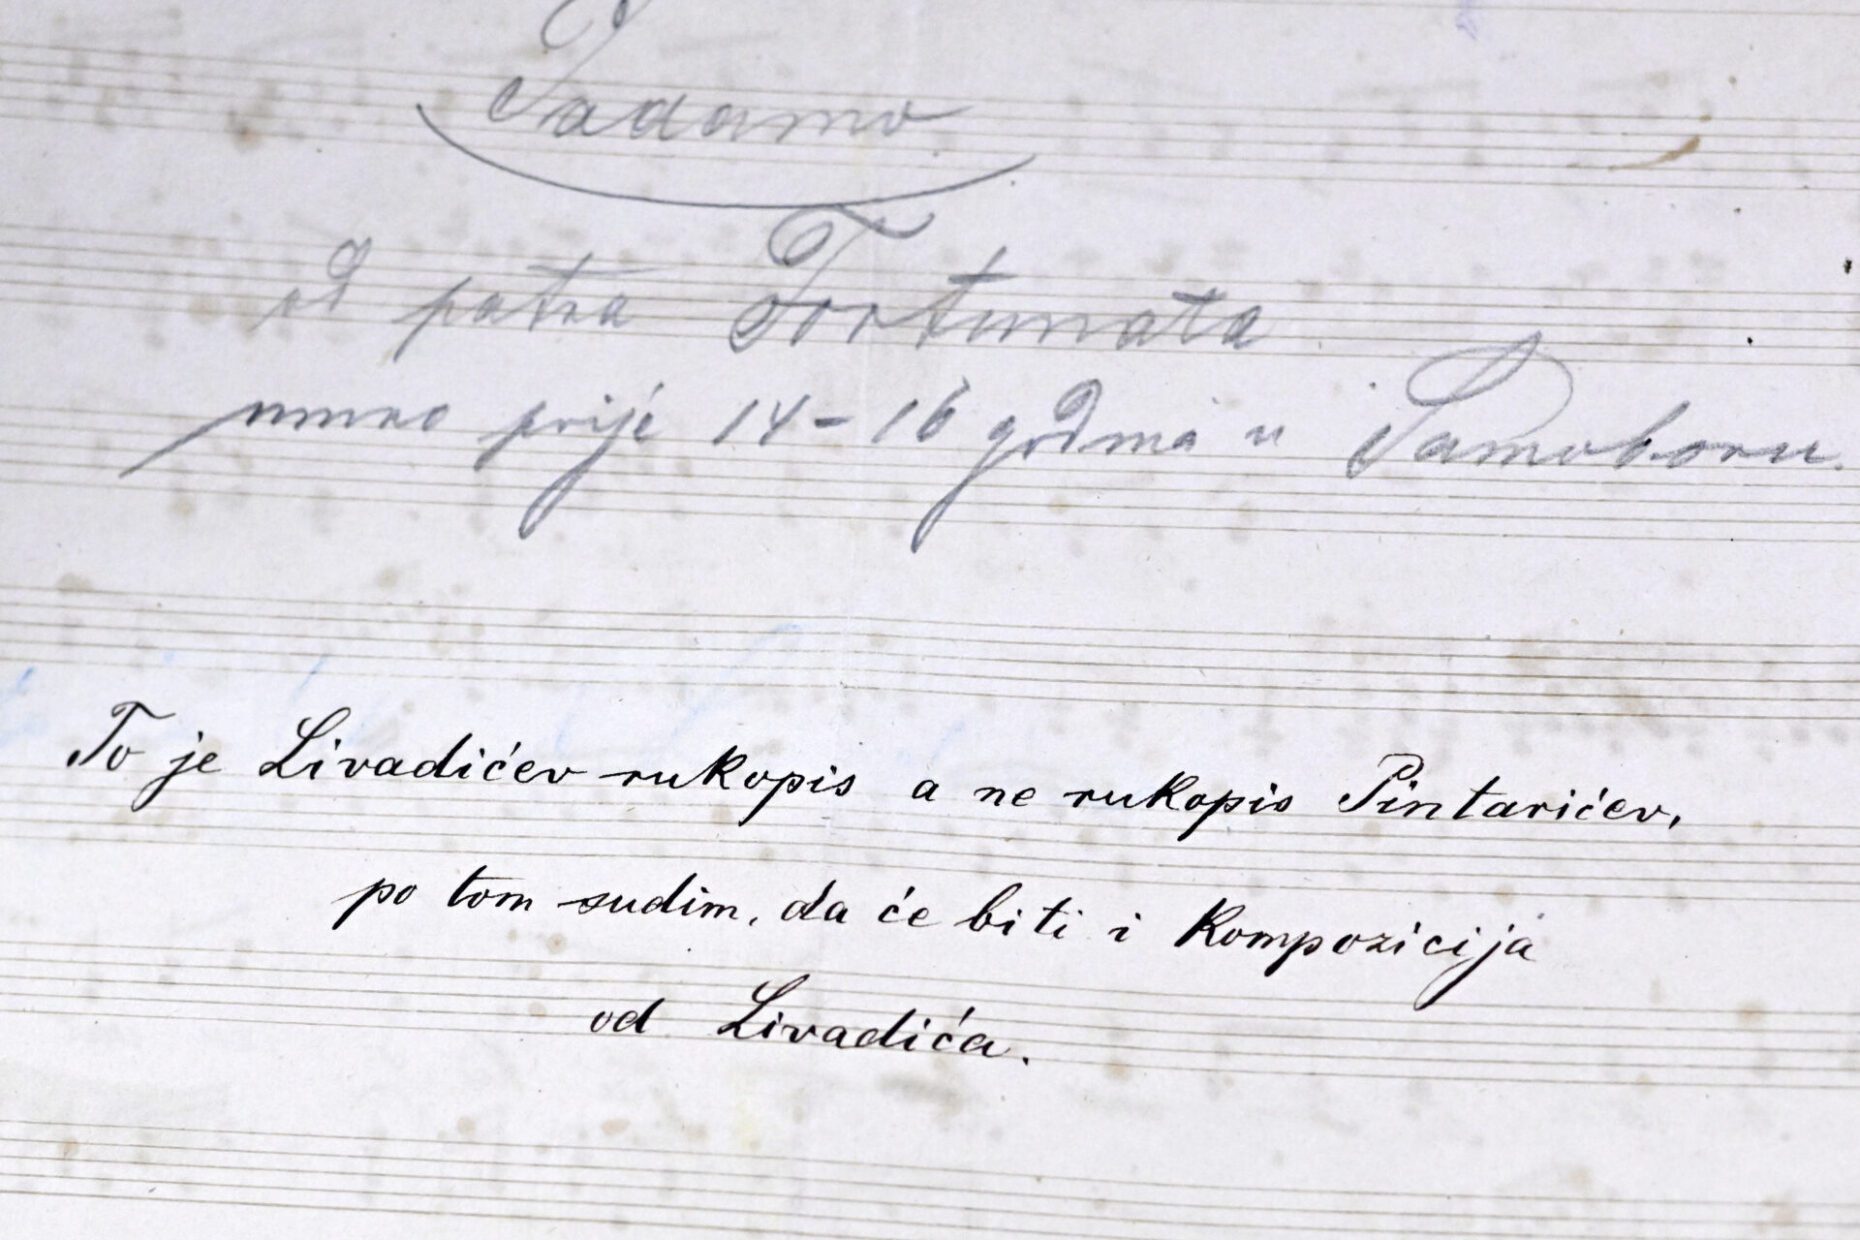 Padamo
od patra Fortunata
umro prije 14-16 godina u Samoboru.
To je Livadićev rukopis a ne rukopis Pintarićev,
po tom sudim, da će biti i kompozicija
od Livadića.